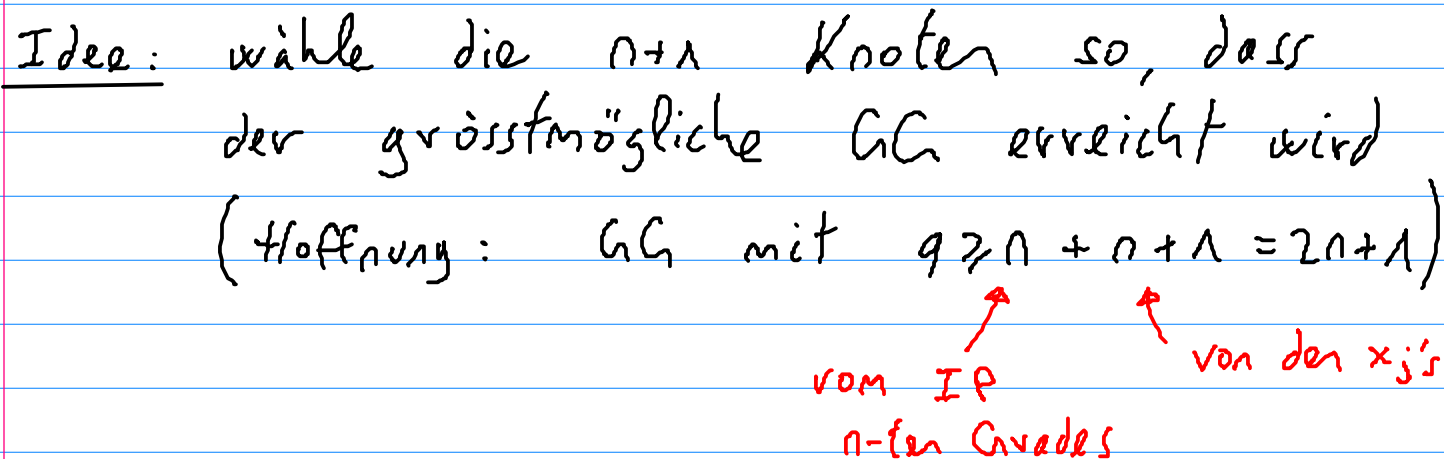 Idee: wähle die n+1 Knoten so, dass
der grösstmögliche GG erreicht wird
(Hoffnung: GG mit q ≥ n + n + 1 = 2n+1)
von den xj's
vom IP
n-ten Grades